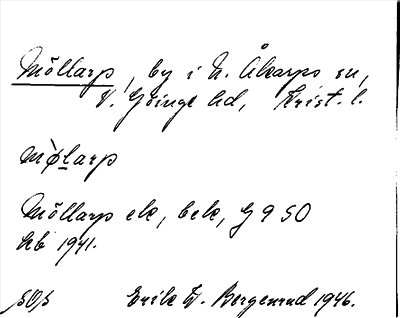 Möllarp, by i N. Åkarps sn,
V. Göinge hd, Krist. l.
mø̀larp
Möllarp ek, bek, G 9 SO
kb 1941.
SOS Erik W. Bergenrud 1946.